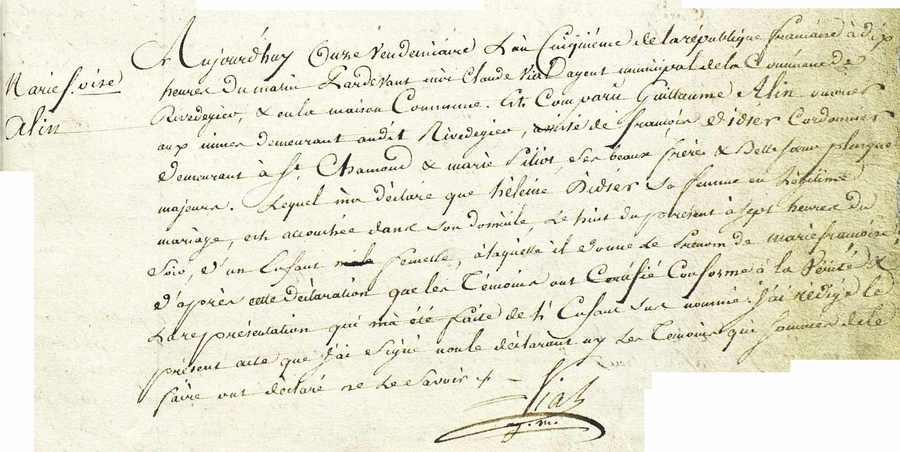 Marie f.coise
Alin
Aujourd'huy Onze vendemiaire L'an Cinquieme de la république francaise à dix
heures du matin Pardevant moi Claude Vial agent municipal de la Commune de
Rivedegier, & en la maison Commune. Est Comparu Guillaume Alin ouvrier
aux mines demeurant audit Rivedegier, assisté de françois Didier Cordonnier
demeurant à St Chamond & marie Piliot, ses beaux frère & Belle soeur plusque
majeurs. Lequel m'a déclaré que hélène Didier Sa femme en Légitime
mariage, est accouchée dans son domicile, Le huit du présent à sept heures du
Soir, d'un Enfant femelle, à laquelle il donne Le Prenom de marie francoise
d'après cette déclaration que les Témoins ont Certifié Conforme à la Vérité &
La représentation qui m'a été faite de Enfant sus nommé. J'ai rédigé le
présent acte que J'ai Signé non le déclarant ny Les Temoins que Sommés de le
faire ont déclaré ne Le Savoir
Vial
ag. m.